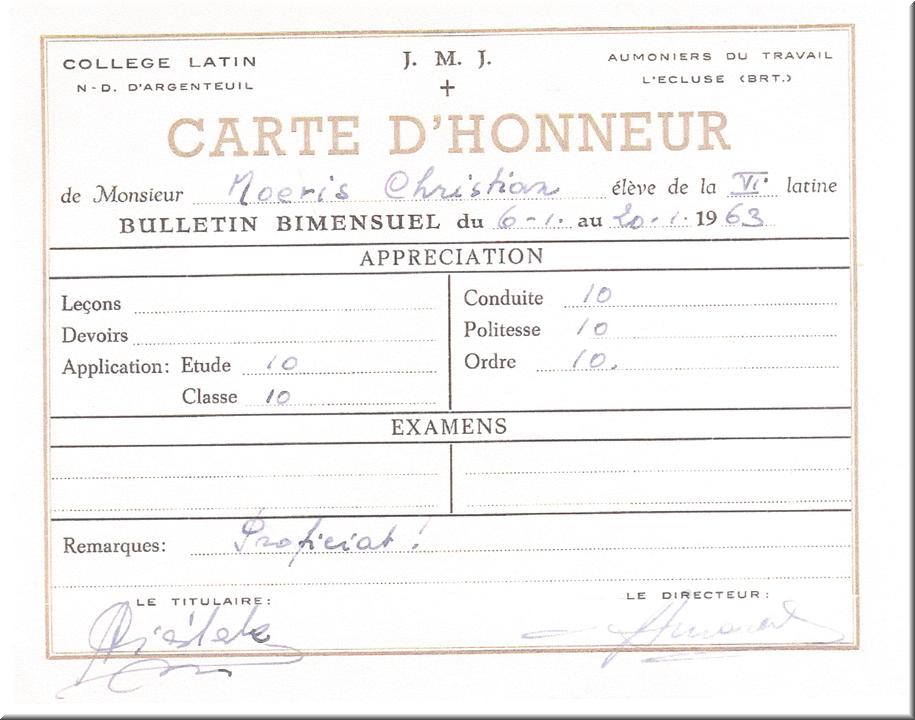 COLLEGE LATIN
N-D. D'ARGENTEUIL
J. M. J.
AUMONIERS DU TRAVAIL
L'ECLUSE (BRT.)
CARTE D'HONNEUR
de Monsieur Moeris Christian élève de la VI. latine
BULLETIN BIMENSUEL du 6-1. au 20-1. 1963
APPRECIATION
Leçons
Devoirs
Application: Etude 10
Classe 10
Conduite 10
Politesse 10
Ordre 10.
EXAMENS
Remarques: Proficiat !
LE TITULAIRE:
LE DIRECTEUR: